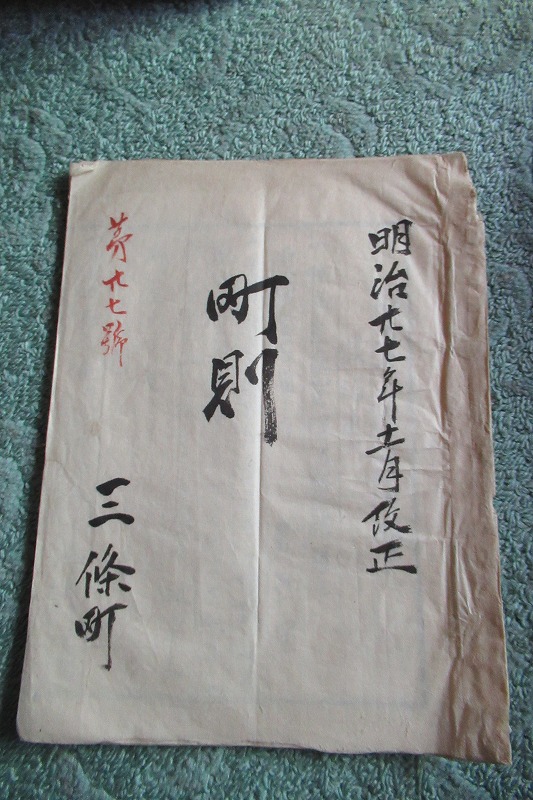 明治廿七年十一月改正
町則
第廿七號
三條町